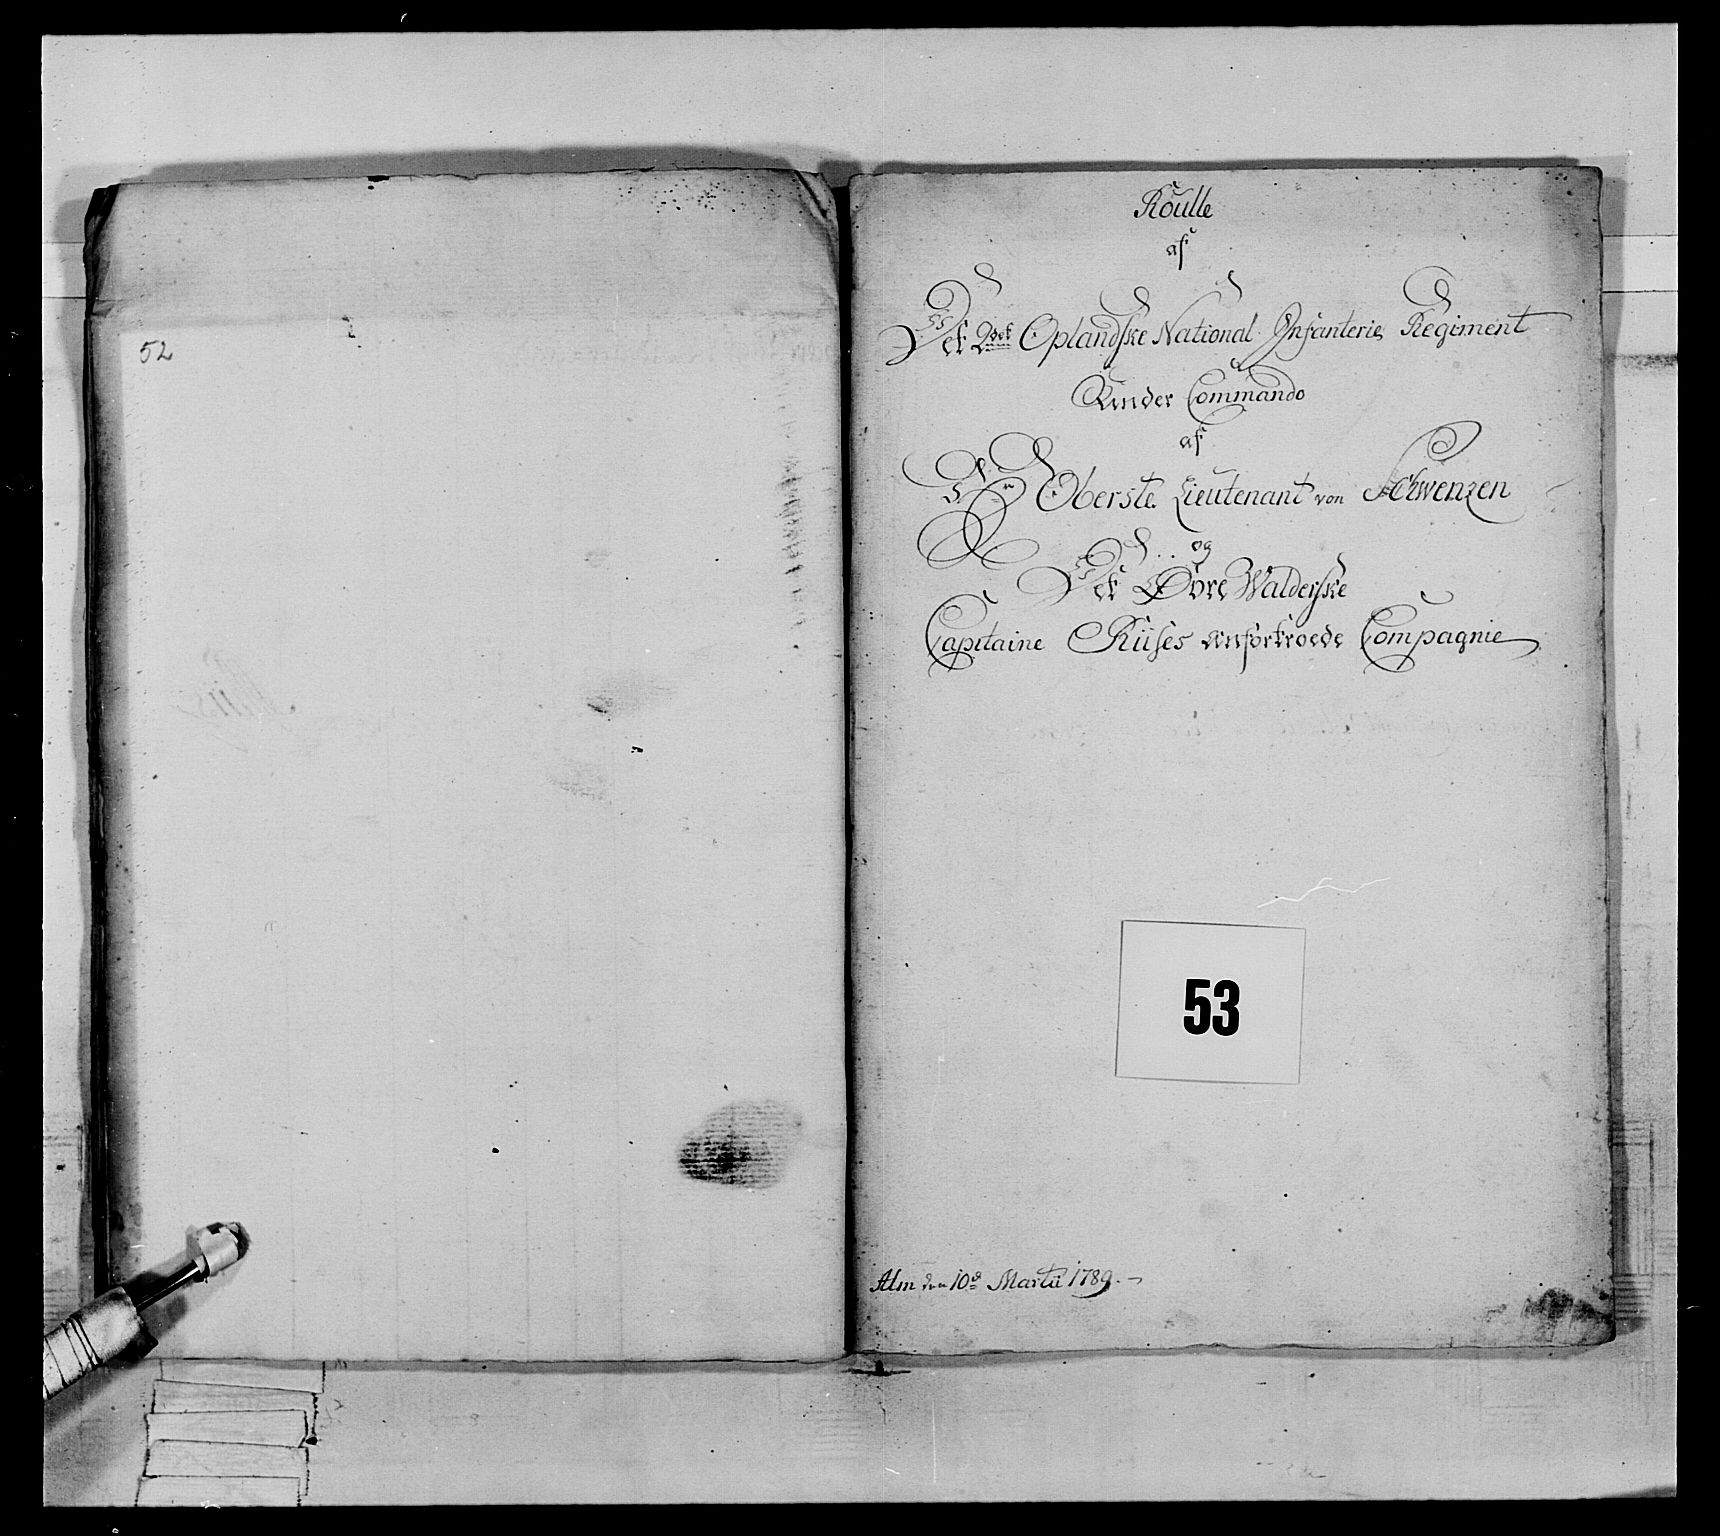 52
Roulle
af
Det 2det Oplandske National Infanterie Regiment
Under Commando
af
Hr Oberste Lieutenant von Schwenzen
og
Det Øvre Walderske
Capitaine Riises anførtroede Compagnie
53
Alm den 10de Martii 1789.